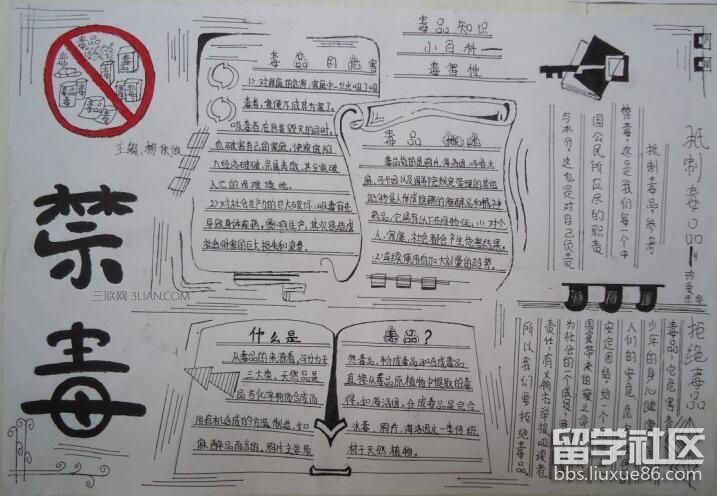 毒品知识
小百科
毒害性
毒品的危害
1)对家庭的危害,家庭中一旦出现了吸
毒者,家便不成其为家了。
吸毒者在自我毁灭的同时,
也破害自己的家庭,使家庭陷
入经济破破、亲属离散、甚至家破
人亡的困难境地。
2)对社会生产力的巨大破坏:吸毒首先
导致身体疾病,影响生产,其次是造成
社会财富的巨大损失和浪费。
毒品概述
毒品指的是鸦片、海洛因、吗啡、大
麻、可卡因以及国务院规定管理的其他
能够使人形成瘾癖的麻醉品和精神
药品。它具有以下共同特征:(1)对个
人、家庭、社会都会产生危害结果。
2)连续使用有加大剂量的趋势。
主编:
禁
毒
三联网 3LIAN.COM
什么是
毒品?
从毒品的来源看,可分为天
三大类。天然品是
品与化学物质合成而
用有机合成的方法制造,如
麻醉品而言的。鸦片主要是
然毒品、半合成毒品和合成毒品
直接从毒品原植物中提取的毒
得,如海洛因。合成毒品是完全
冰毒。鸦片、海洛因这一类传统
材于天然植物。
抵制毒品
珍爱生命
抵制毒品,参与
禁毒,这是我们每一个中
国公民所应尽的职责
与本分,这也是对自己负责
拒绝毒品
毒品,它危害
少年的身心健康
人们的安危,危害
安定团结,给一个
国家带来的灾
为社会的一个成员,我
责任,有义务去举报吸读者
所以我们要拒绝毒品
留学社区
bbs.liuxue86.com